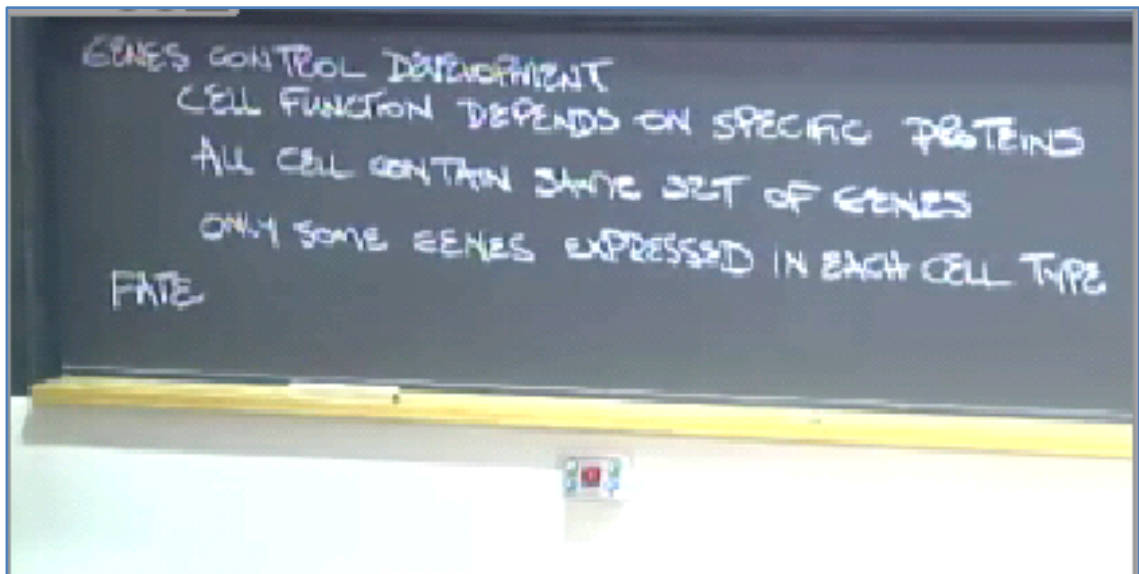 GENES CONTROL DEVELOPMENT
CELL FUNCTION DEPENDS ON SPECIFIC PROTEINS
ALL CELL CONTAIN SAME SET OF GENES
ONLY SOME GENES EXPRESSED IN EACH CELL TYPE
FATE